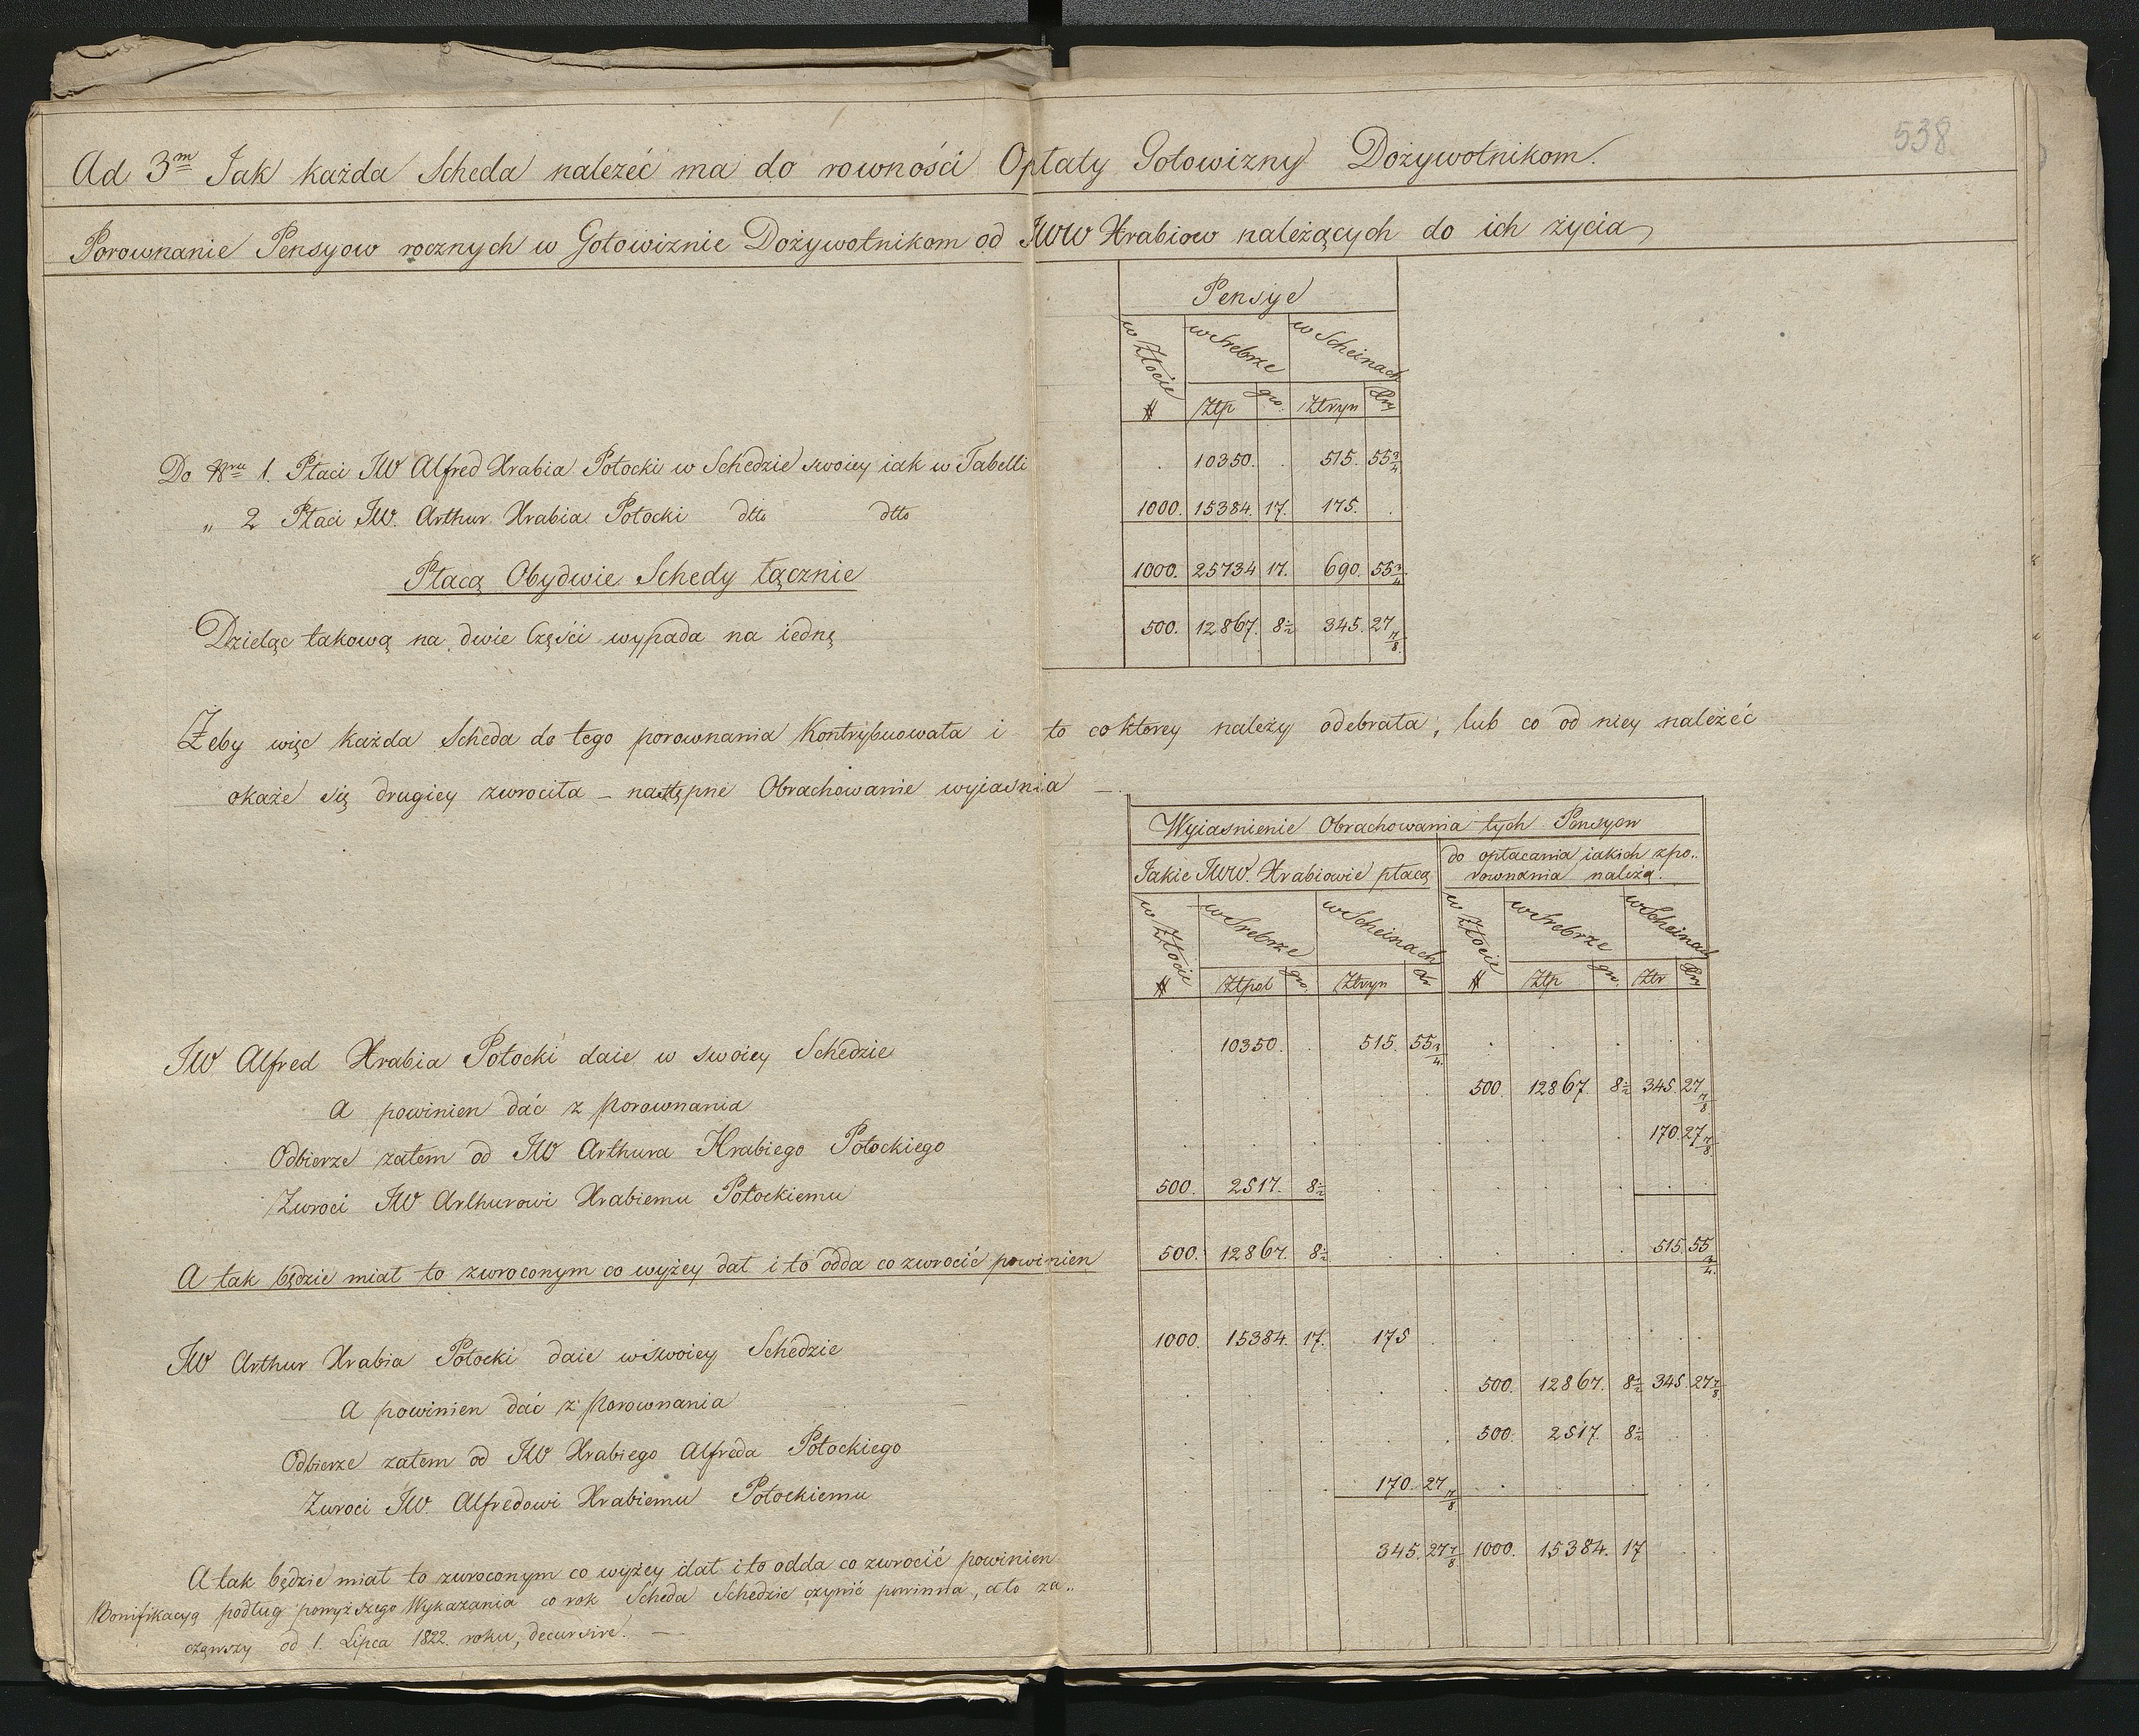 538
Ad 3m Jak każda Scheda należeć ma do rowności Opłaty Gotowizny Dożywotnikom.
Porownanie Pensyow rocznych w Gotowiznie Dożywotnikom od JWW Hrabiow należących do ich życia
Pensye
w Złocie w Srebrze w Scheinach
# Złp gro. Złryn Xry
Do Nru 1. Płaci JW Alfred Hrabia Potocki w Schedzie swoiey iak w Tabelli . 10350. . 515. 55 3/4
„ 2 Płaci JW. Arthur Hrabia Potocki dtto dtto 1000. 15384. 17. 175. .
Płacą Obydwie Schedy łącznie 1000. 25734 17. 690. 55 3/4
Dzieląc takową na dwie Części wypada na iednę 500. 12867. 8 1/2 345. 27 7/8
Żeby więc każda Scheda do tego porownania Kontrybuowała i to co ktorey należy odebrała, lub co od niey należeć
okaże się drugiey zwrociła – następne Obrachowanie wyiasnia –
Wyiasnienie Obrachowania tych Pensyow
Jakie JWW. Hrabiowie płacą do opłacania iakich z po..
rownania należą.
w Złocie w Srebrze w Scheinach w Złocie w Srebrze w Scheinach
# Złpol gro. Złryn Xr # Złp gro. Złr Xry
JW Alfred Hrabia Potocki daie w swoiey Schedzie . 10350. . 515. 55 3/4 . . . . .
A powinien dać z Porownania . . . . . 500. 12867. 8 1/2 345. 27 7/8
Odbierze zatem od JW Arthura Hrabiego Potockiego . . . . . . . . 170. 27 7/8
Zwroci JW Arthurowi Hrabiemu Potockiemu 500. 2517. 8 1/2 . . . . . . .
A tak będzie miał to zwroconym co wyżey dał i to odda co zwrocić powinien 500. 12867. 8 1/2 . . . . . 515. 55 3/4
JW Arthur Hrabia Potocki daie w swoiey Schedzie 1000. 15384. 17. 175 . . . . . .
A powinien dać z Porownania . . . . . 500. 12867. 8 1/2 345. 27 7/8
Odbierze zatem od JW Hrabiego Alfreda Potockiego . . . . . 500. 2517. 8 1/2 . .
Zwroci JW. Alfredowi Hrabiemu Potockiemu . . . 170. 27 7/8 . . . . .
A tak będzie miał to zwroconym co wyżey dał i to odda co zwrocić powinien 345. 27 7/8 1000. 15384. 17 . .
Bonifikacyą podług powyższego Wykazania co rok Scheda Schedzie czynić powinna, a to za..
cząwszy od 1. Lipca 1822. roku, decursive. —